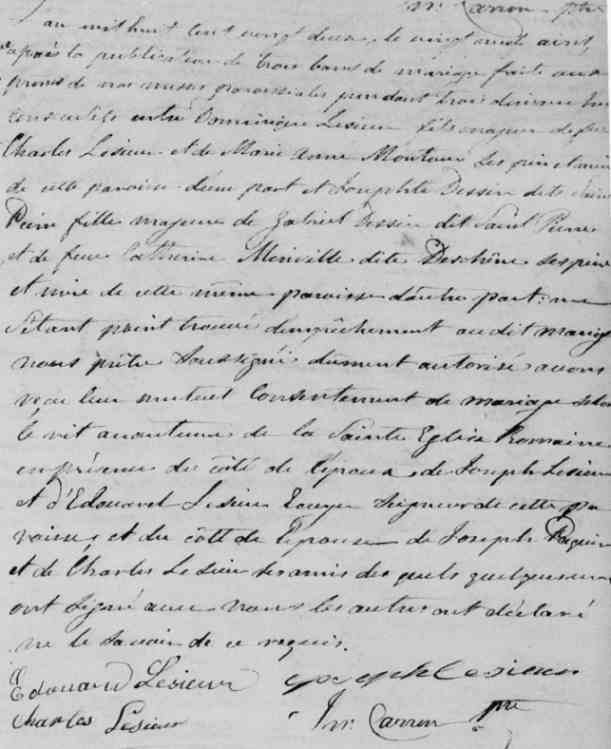 Inr. Carron ptre
L'an mil huit cent vingt deux, le vingt août ainsi
après la publication de trois bans de mariage faite aux
prones de nos messes paroissiales pendant trois dimanches
consecutifs entre Dominique Lesieur fils majeur de feu
Charles Lesieur et de Marie Anne les père et mère
de cette paroisse d'une part et Josephte Dessin dite Saint
Pierre fille majeure de Gabriel Dessin dit Saint Pierre
et de feue Catherine Miville dite Deschêne ses père
et mère de cette même paroisse d'autre part: ne
s'étant point trouvé d'empêchement au dit mariage
nous prêtre Soussigné dument autorisé avons
reçu leur mutuel Consentement de mariage selon
le rit de la Sainte Eglise Romaine
en présence du côté de l'époux de Joseph Lesieur
et d'Edouard Lesieur Ecuyer Seigneur de cette pa
roisse, et du côté de l'épouse de Joseph Paquin
et de Charles Lesieur ses amis des quels quelques uns
ont Signé avec nous les autres ont déclaré
ne le Savoir de ce requis.
Edouard Lesieur Joseph Lesieur
Charles Lesieur Inr. Carron ptre